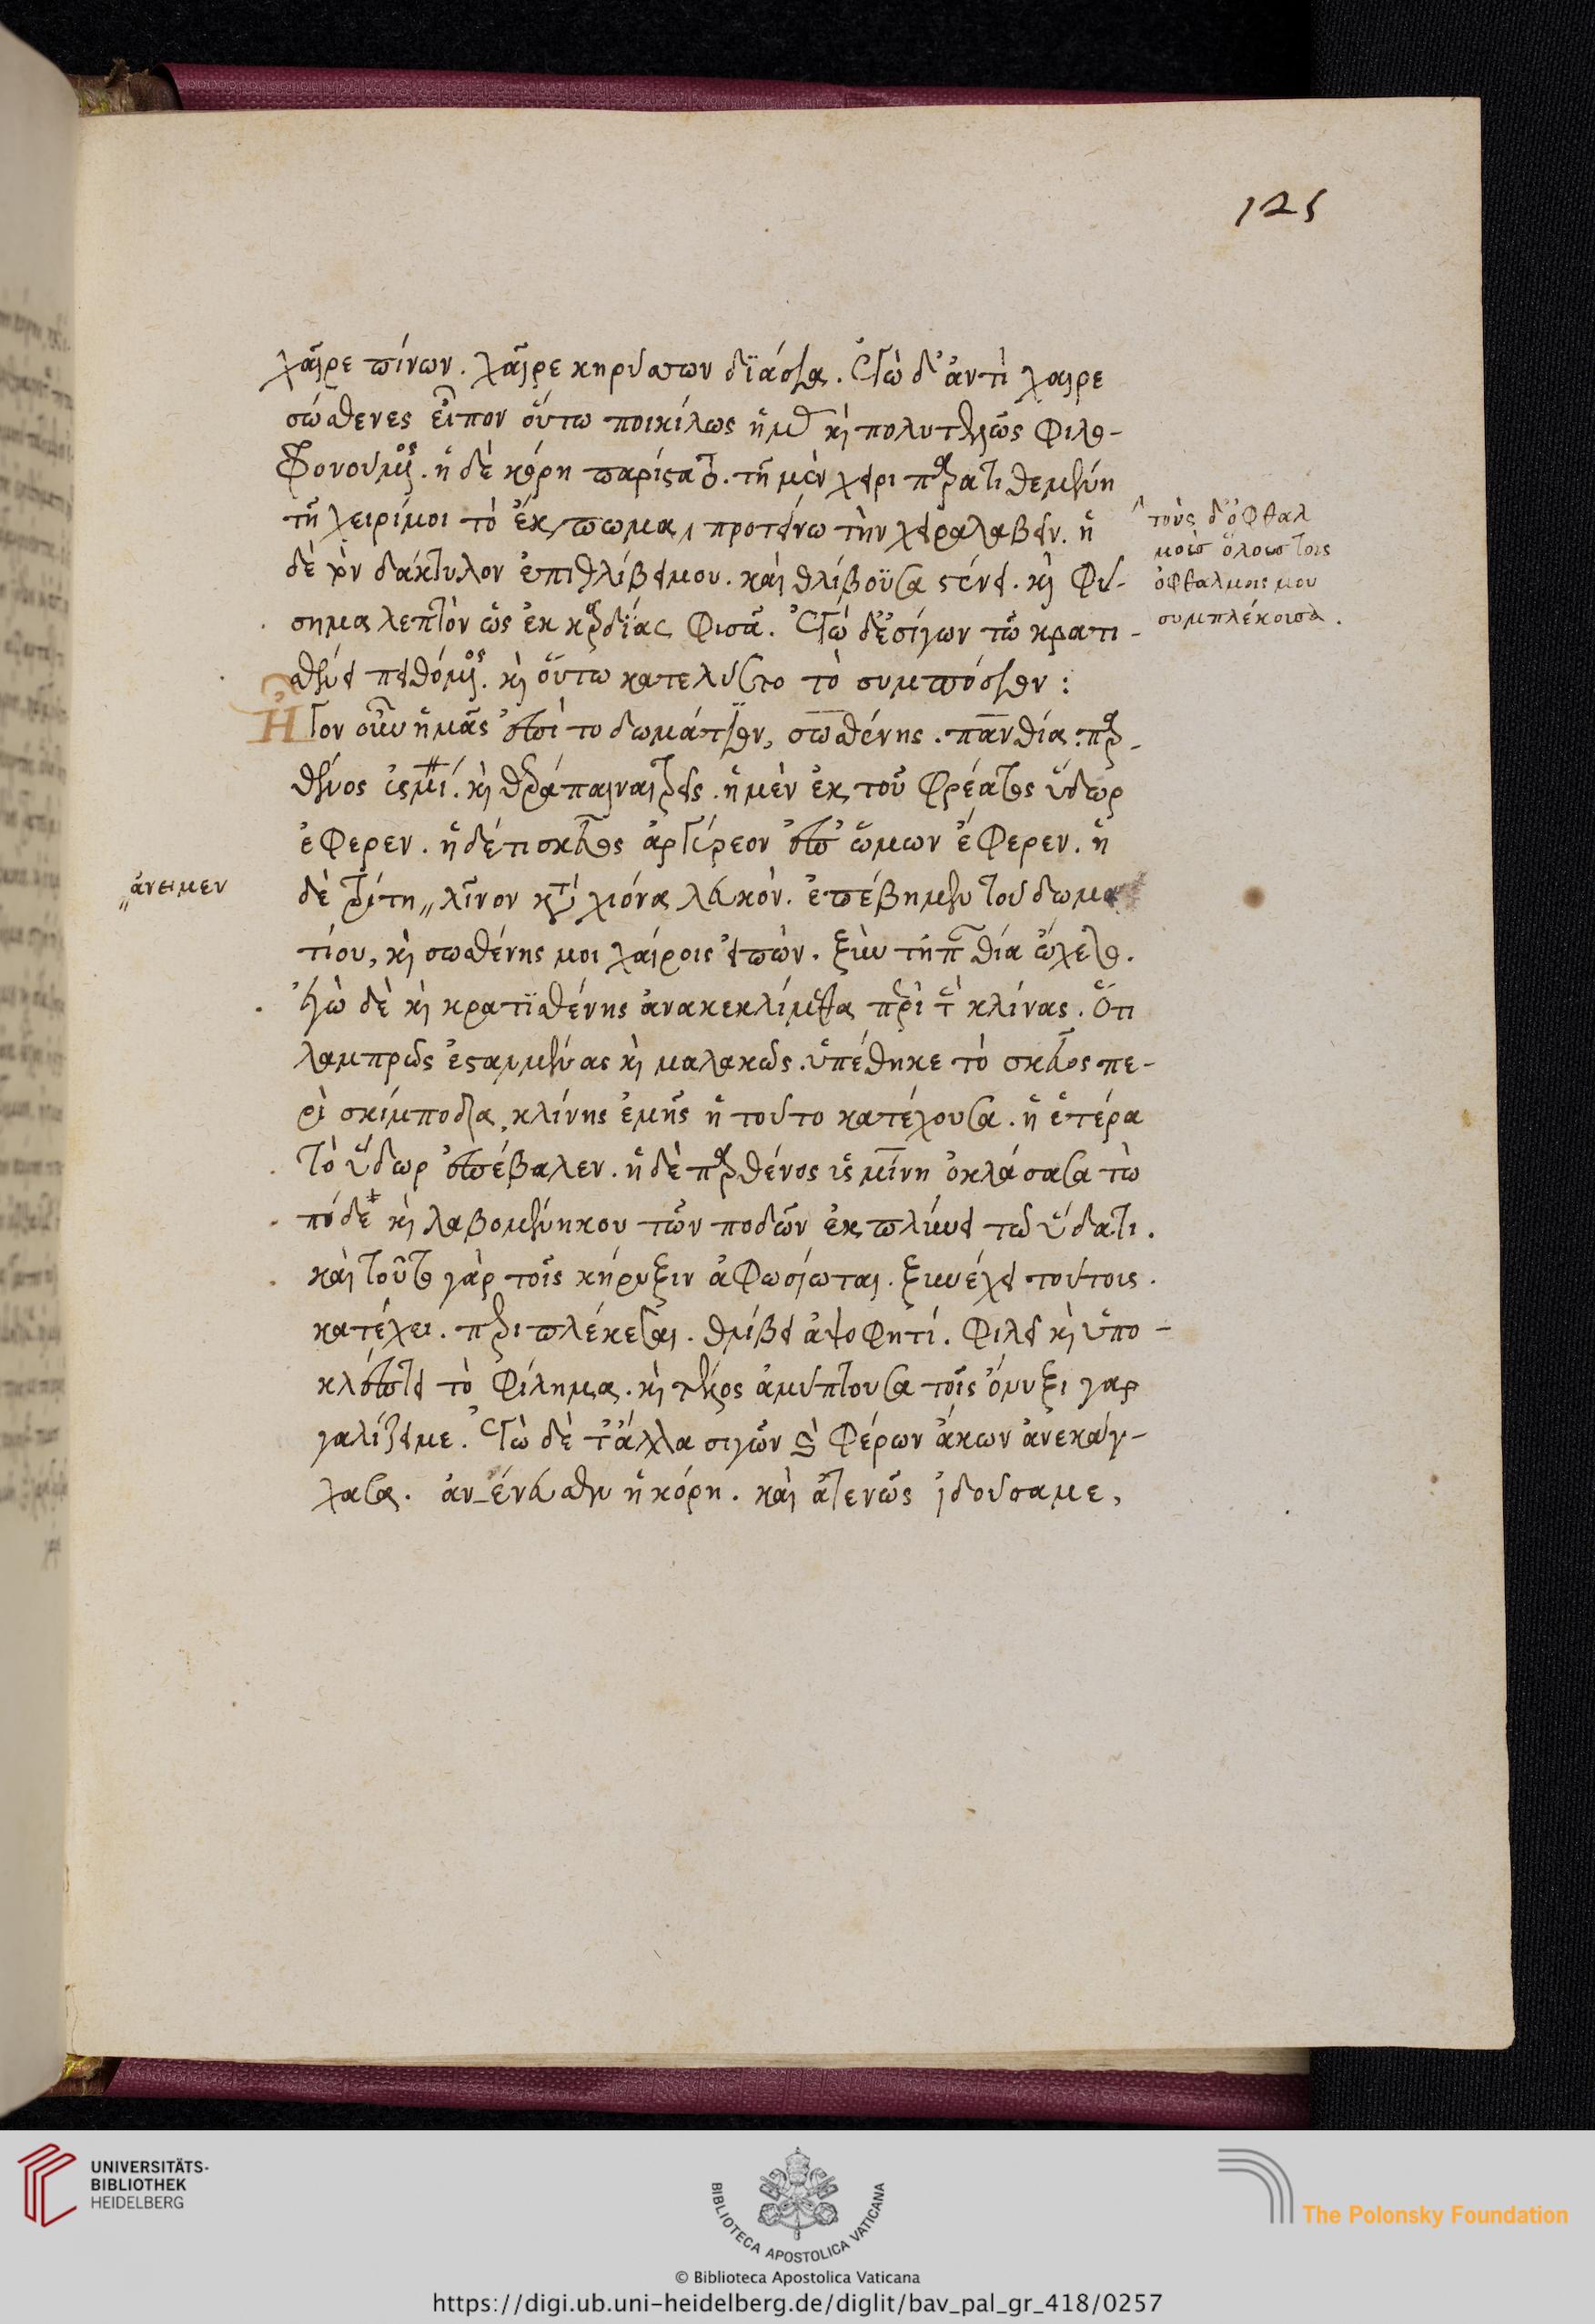 125
χαῖρε πίνων. χαῖρε κηρύττων διάσια. Ἐγὼ δ' ἀντὶ χαιρε
σώσθενες εἶπον οὕτω ποικίλως ἡμᾶς καὶ πολυτελῶς φιλο-
φρονούμενος. ἡ δὲ κόρη παρίσταται. τῇ μὲν χειρὶ παρατιθεμένη
τῇ χειρί μοι τὸ ἔκπωμα, προτείνω τὴν χεῖρα λαβεῖν. ἡ
δὲ τὸν δάκτυλον ἐπιθλίβει μου. καὶ θλίβουσα στένει. καὶ φύ-
σημα λεπτὸν ὡς ἐκ καρδίας φυσᾶ. Ἐγὼ δ' ἐσίγων τῶ κρατι-
σθένει πειθόμενος. καὶ οὕτω κατελύετο τὸ συμπόσιον:
τοὺς δ' ὀφθαλ
μοὺς ὅλους τοῖς
ὀφθαλμοῖς μου
συμπλέκουσα.
Ἦγον οὖν ἡμᾶς ἐπὶ το δωμάτιον, σωσθένης. πανθία. παρ-
θένος ὑσμίνη. καὶ θεράπαιναι τρεῖς. ἡ μὲν ἐκ τοῦ φρέατος ὕδωρ
ἔφερεν. ἡ δέ τι σκεῦος ἀργύρεον ἐπ' ὤμων ἔφερεν. ἡ
ἄνειμεν
δὲ τρίτη λῖνον κατὰ χιόνα λευκόν. ἐπέβημεν τοῦ δωμα
τίου, καὶ σωσθένης μοι χαίροις εἰπὼν. ξὺν τῇ πανθία ὤχετο.
Ἐγὼ δὲ καὶ κρατισθένης ἀνακεκλίμεθα περὶ τὰς κλίνας. Ὅτι
λαμπρῶς ἐσταμένας καὶ μαλακῶς. ὑπέθηκε τὸ σκεῦος πε-
ρὶ σκίμποδα, κλίνης ἐμῆς ἡ τοῦτο κατέχουσα. ἡ ἑτέρα
τὸ ὕδωρ ἐπέβαλεν. ἡ δὲ παρθένος ὑσμίνη ὀκλάσασα τὼ
πόδε καὶ λαβομένη μου τῶν ποδῶν ἐκπλύνει τῶ ὕδατι.
καὶ τοῦτο γὰρ τοῖς κήρυξιν ἀφωσίωται. ξυνέχει τούτοις.
κατέχει. περιπλέκεται. θλίβει ἀψοφητί. φιλεῖ καὶ ὑπο-
κλέπτει τὸ φίλημα. καὶ τέλος ἀμύπτουσα τοῖς ὄνυξι γαρ
γαλίζει με. Ἐγὼ δὲ τἄλλα σιγῶν καὶ φέρων ἄκων ἀνεκάγ-
χασα. ἀνένευσεν ἡ κόρη. καὶ ἀτενῶς ἰδοῦσα με,
UNIVERSITÄTS-
BIBLIOTHEK
HEIDELBERG
BIBLIOTECA APOSTOLICA VATICANA
The Polonsky Foundation
© Biblioteca Apostolica Vaticana
https://digi.ub.uni-heidelberg.de/diglit/bav_pal_gr_418/0257